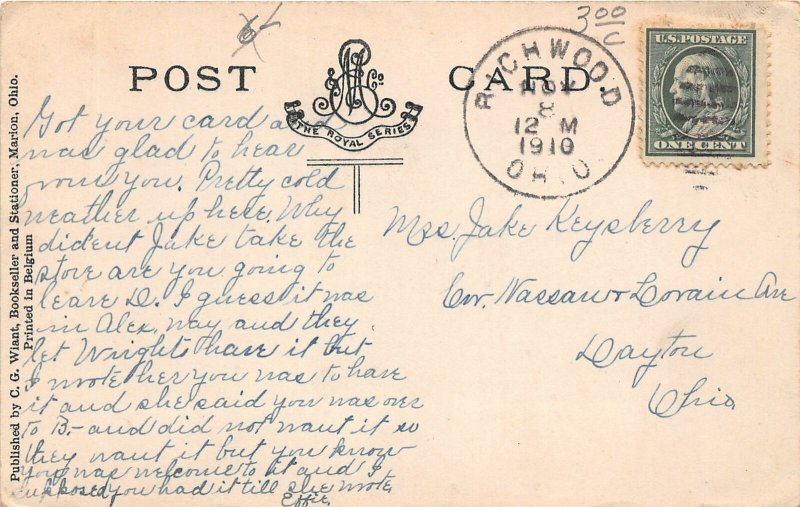 3 00
C
POST CARD
THE ROYAL SERIES
RICHWOOD
NOV
8
12 M
1910
OHIO
U.S. POSTAGE
ONE CENT
Published by C. G. Wiant, Bookseller and Stationer, Marion, Ohio.
Printed in Belgium
Got your card and
was glad to hear
from you. Pretty cold
weather up here. Why
dident Jake take the
store are you going to
leave D. I guess it was
in Alex. way and they
let Wrights have it but
I wrote her you was to have
it and she said you was over
to B.- and did not want it so
they want it but you know
you was welcome to it and I
supposed you had it till she wrote
Effie.
Mrs. Jake Keysberry
Cor. Nassaw & Lorain Ave
Dayton
Ohio